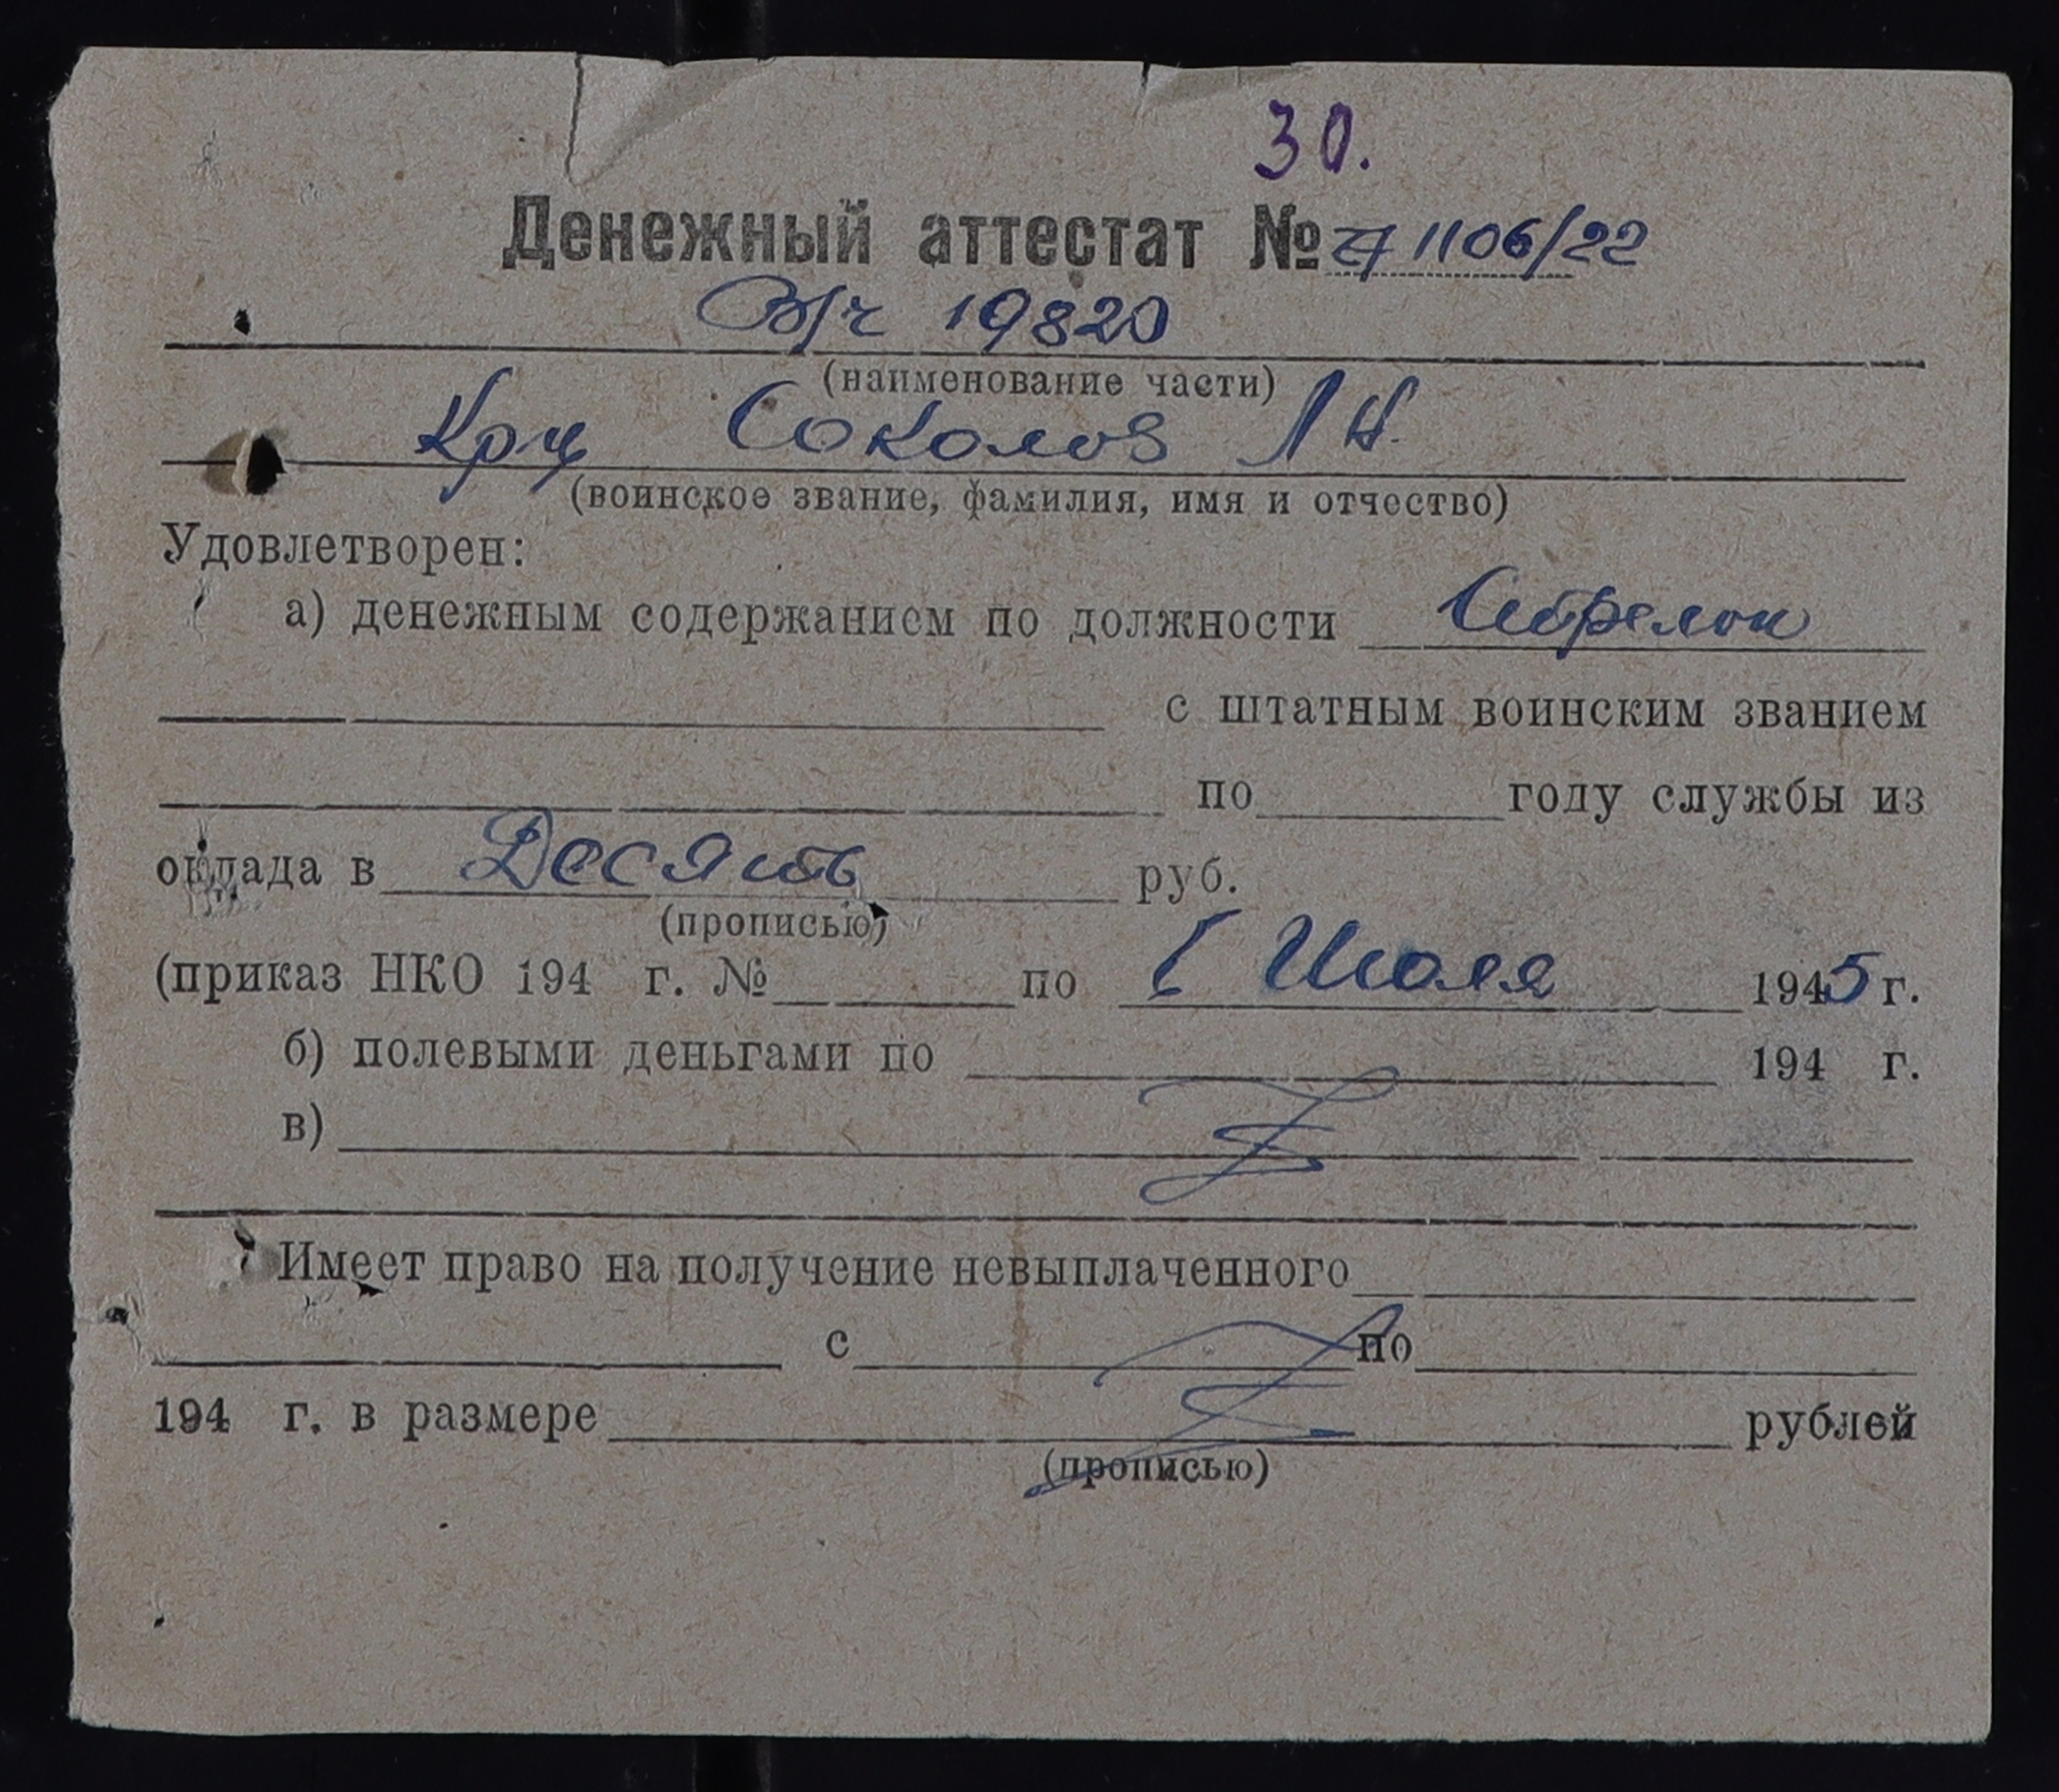 30.
Денежный аттестат № 1106/22
В/ч 19820
(наименование части)
Кр-ц Соколов Л Н.
(воинское звание, фамилия, имя и отчество)
Удовлетворен:
а) денежным содержанием по должности Стрелок
с штатным воинским званием
по году службы из
оклада в Десять руб.
(прописью)
(приказ НКО 194 г. № по 1 Июля 1945 г.
б) полевыми деньгами по 194 г.
в)
Имеет право на получение невыплаченного
с по
194 г. в размере рублей
(прописью)